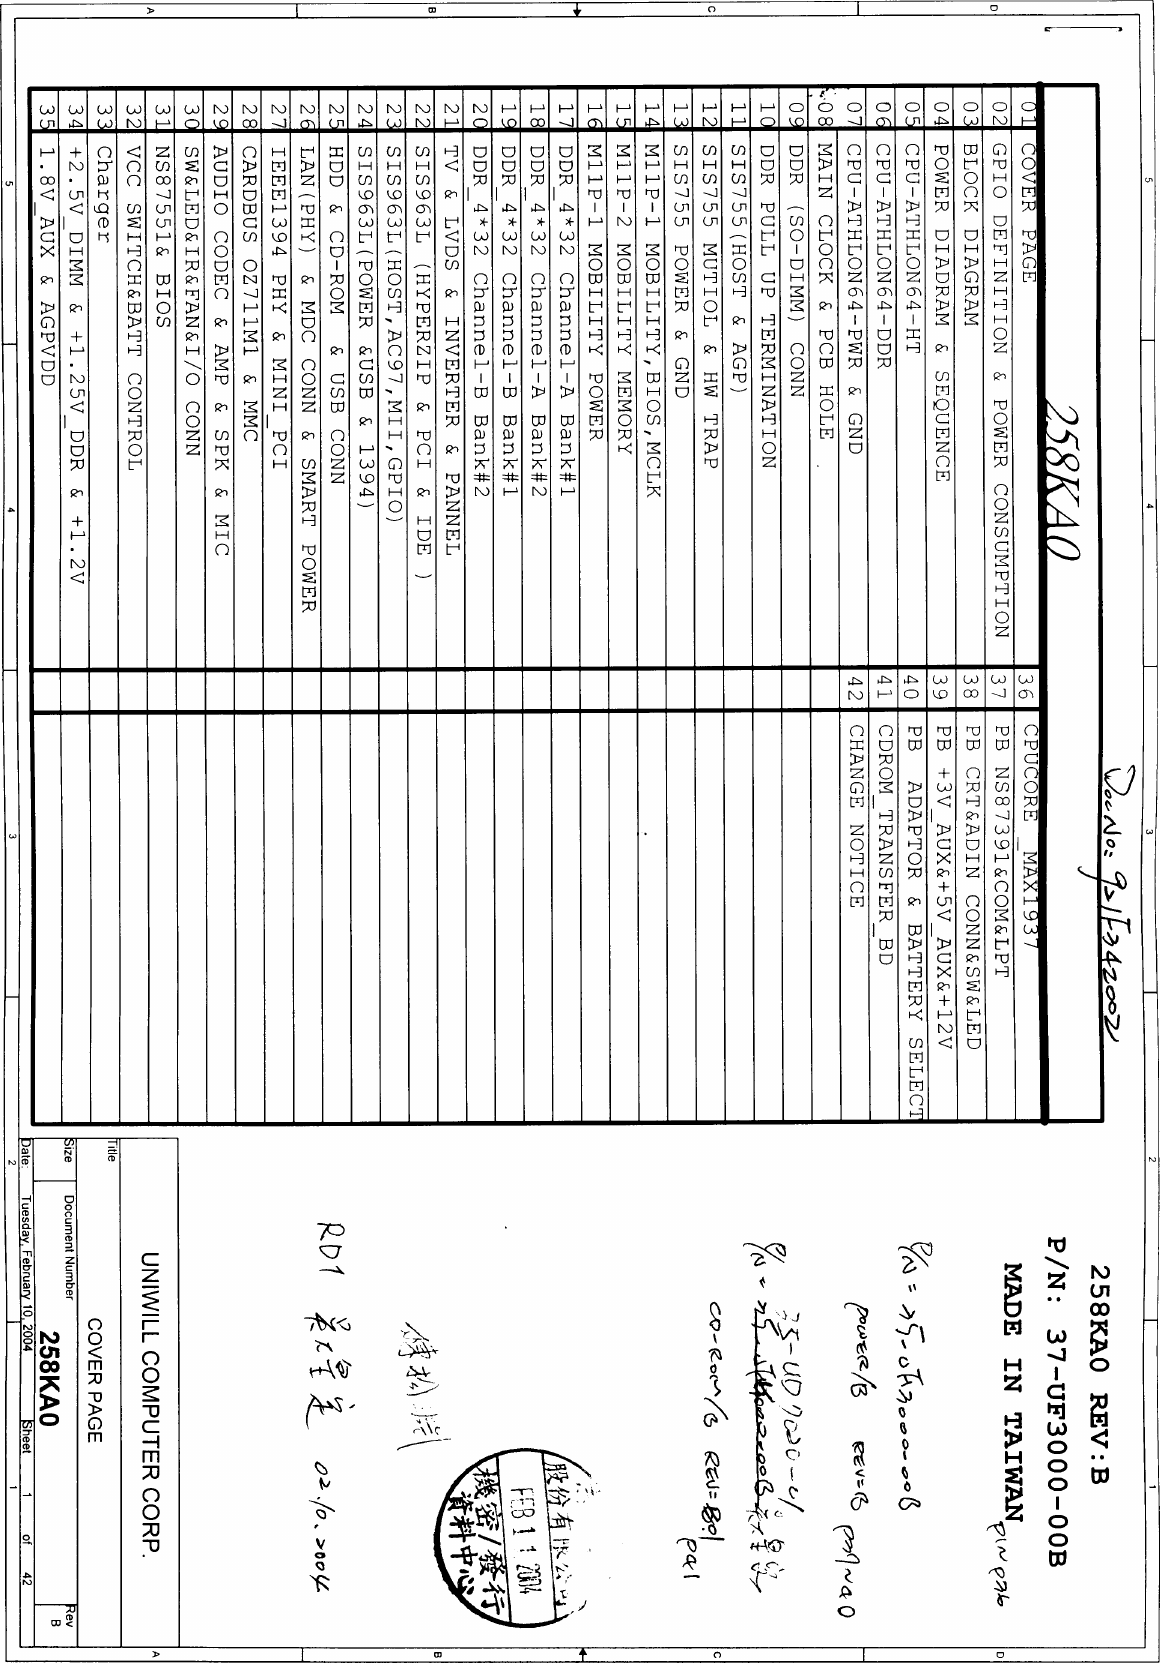 258KA0
01 COVER PAGE
02 GPIO DEFINITION & POWER CONSUMPTION
03 BLOCK DIAGRAM
04 POWER DIADRAM & SEQUENCE
05 CPU-ATHLON64-HT
06 CPU-ATHLON64-DDR
07 CPU-ATHLON64-PWR & GND
08 MAIN CLOCK & PCB HOLE
09 DDR (SO-DIMM) CONN
10 DDR PULL UP TERMINATION
11 SIS755(HOST & AGP)
12 SIS755 MUTIOL & HW TRAP
13 SIS755 POWER & GND
14 M11P-1 MOBILITY,BIOS,MCLK
15 M11P-2 MOBILITY MEMORY
16 M11P-1 MOBILITY POWER
17 DDR_4*32 Channel-A Bank#1
18 DDR_4*32 Channel-A Bank#2
19 DDR_4*32 Channel-B Bank#1
20 DDR_4*32 Channel-B Bank#2
21 TV & LVDS & INVERTER & PANNEL
22 SIS963L (HYPERZIP & PCI & IDE )
23 SIS963L(HOST,AC97,MII,GPIO)
24 SIS963L(POWER &USB & 1394)
25 HDD & CD-ROM & USB CONN
26 LAN(PHY) & MDC CONN & SMART POWER
27 IEEE1394 PHY & MINI_PCI
28 CARDBUS OZ711M1 & MMC
29 AUDIO CODEC & AMP & SPK & MIC
30 SW&LED&IR&FAN&I/O CONN
31 NS87551& BIOS
32 VCC SWITCH&BATT CONTROL
33 Charger
34 +2.5V_DIMM & +1.25V_DDR & +1.2V
35 1.8V_AUX & AGPVDD
36 CPUCORE _MAX1937
37 PB NS87391&COM&LPT
38 PB CRT&ADIN CONN&SW&LED
39 PB +3V_AUX&+5V_AUX&+12V
40 PB ADAPTOR & BATTERY SELECT
41 CDROM_TRANSFER_BD
42 CHANGE NOTICE
258KA0 REV:B
P/N: 37-UF3000-00B
MADE IN TAIWAN
POWER/B REV=B
CD-ROM/B
RD1
02.10.2004
股份有限公司
FEB 11 2004
機密/發行
資料中心
UNIWILL COMPUTER CORP.
Title
COVER PAGE
Size Document Number Rev
258KA0 B
Date: Tuesday, February 10, 2004 Sheet 1 of 42
5 4 3 2 1
5 4 3 2 1
D C B A
D C B A